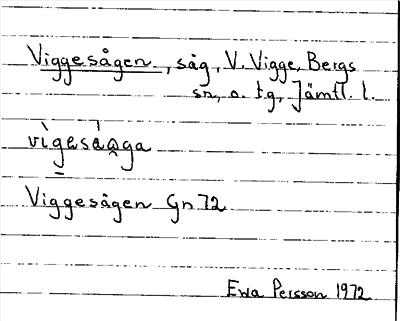 Viggesågen, såg, V. Vigge, Bergs
sn, o. tg, Jämtl. l.
Viggesågen Gn 72
Ewa Persson 1972